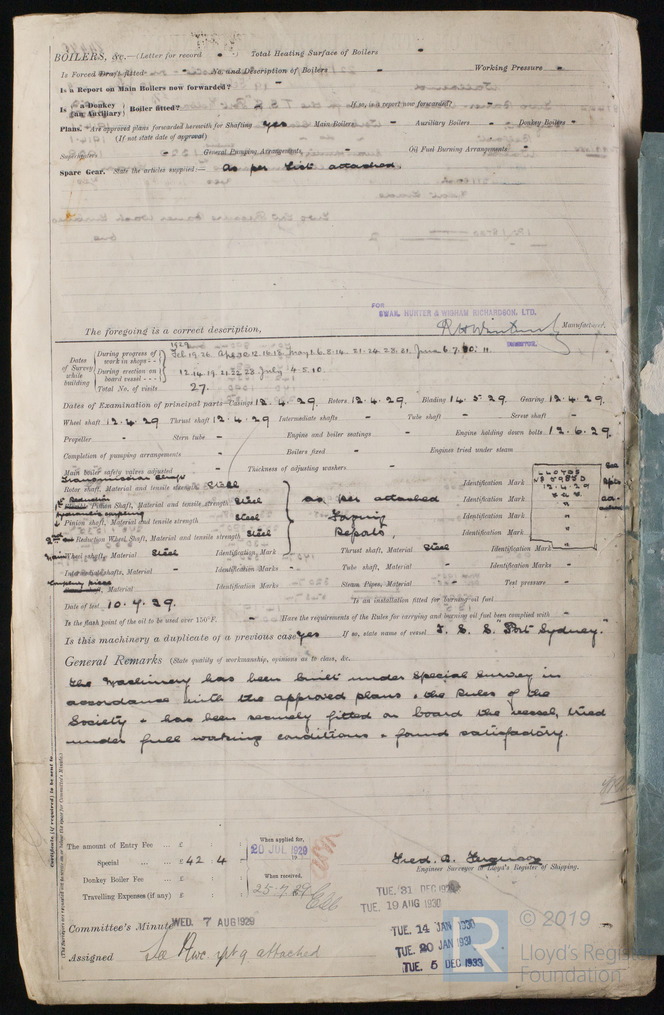 BOILERS, &c.—(Letter for record - ) Total Heating Surface of Boilers -
Is Forced Draft fitted - No. and Description of Boilers - Working Pressure -
Is a Report on Main Boilers now forwarded?
Is { a Donkey / an Auxiliary } Boiler fitted? If so, is a report now forwarded?
Plans. Are approved plans forwarded herewith for Shafting Yes Main Boilers - Auxiliary Boilers - Donkey Boilers -
(If not state date of approval)
Superheaters - General Pumping Arrangements - Oil Fuel Burning Arrangements -
Spare Gear. State the articles supplied:— As per list attached.
FOR
SWAN, HUNTER & WIGHAM RICHARDSON, LTD.
The foregoing is a correct description, Manufacturer.
1929
Dates of Survey while building
During progress of work in shops - -
During erection on board vessel - - - 12.14.19.21.22.23 July 4.5.10
Total No. of visits 27.
Dates of Examination of principal parts—Casings 12.4.29. Rotors 12.4.29. Blading 14.5.29. Gearing 12.4.29.
Wheel shaft 12.4.29 Thrust shaft 12.4.29 Intermediate shafts - Tube shaft - Screw shaft -
Propeller - Stern tube - Engine and boiler seatings - Engine holding down bolts 12.6.29.
Completion of pumping arrangements - Boilers fixed - Engines tried under steam
Main boiler safety valves adjusted - Thickness of adjusting washers -
Rotor shaft, Material and tensile strength Steel Identification Mark
1st Reduction Pinion Shaft, Material and tensile strength Steel as per attached Identification Mark
Pinion shaft, Material and tensile strength Steel Forging Identification Mark
2nd Reduction Wheel Shaft, Material and tensile strength Steel Reports, Identification Mark
LLOYDS
12.4.29
Main Wheel shaft, Material Steel Identification Mark - Thrust shaft, Material Steel Identification Mark
Intermediate shafts, Material - Identification Marks - Tube shaft, Material - Identification Marks -
Material - Identification Marks - Steam Pipes, Material - Test pressure -
Date of test 10.4.29. Is an installation fitted for burning oil fuel -
Is the flash point of the oil to be used over 150°F. - Have the requirements of the Rules for carrying and burning oil fuel been complied with -
Is this machinery a duplicate of a previous case Yes If so, state name of vessel T.S.S. "Port Sydney."
General Remarks (State quality of workmanship, opinions as to class, &c.
The Machinery has been built under Special Survey in
accordance with the approved plans & the Rules of the
Society & has been securely fitted on board the vessel, tried
under full working conditions & found satisfactory.
Certificate (if required) to be sent to
(The Surveyors are requested not to write on or below the space for Committee's Minute.)
The amount of Entry Fee ... £ : : When applied for,
Special ... ... £ 42 : 4 : 20 JUL 1929
Donkey Boiler Fee ... £ : : When received,
Travelling Expenses (if any) £ : : 25.7.29
Engineer Surveyor to Lloyd's Register of Shipping.
TUE. 31 DEC 1929
TUE. 19 AUG 1930
Committee's Minute WED. 7 AUG 1929
TUE. 14 JAN 1930
TUE. 20 JAN 1931
TUE. 5 DEC 1933
Assigned See attached
© 2019
Lloyd's Register
Foundation